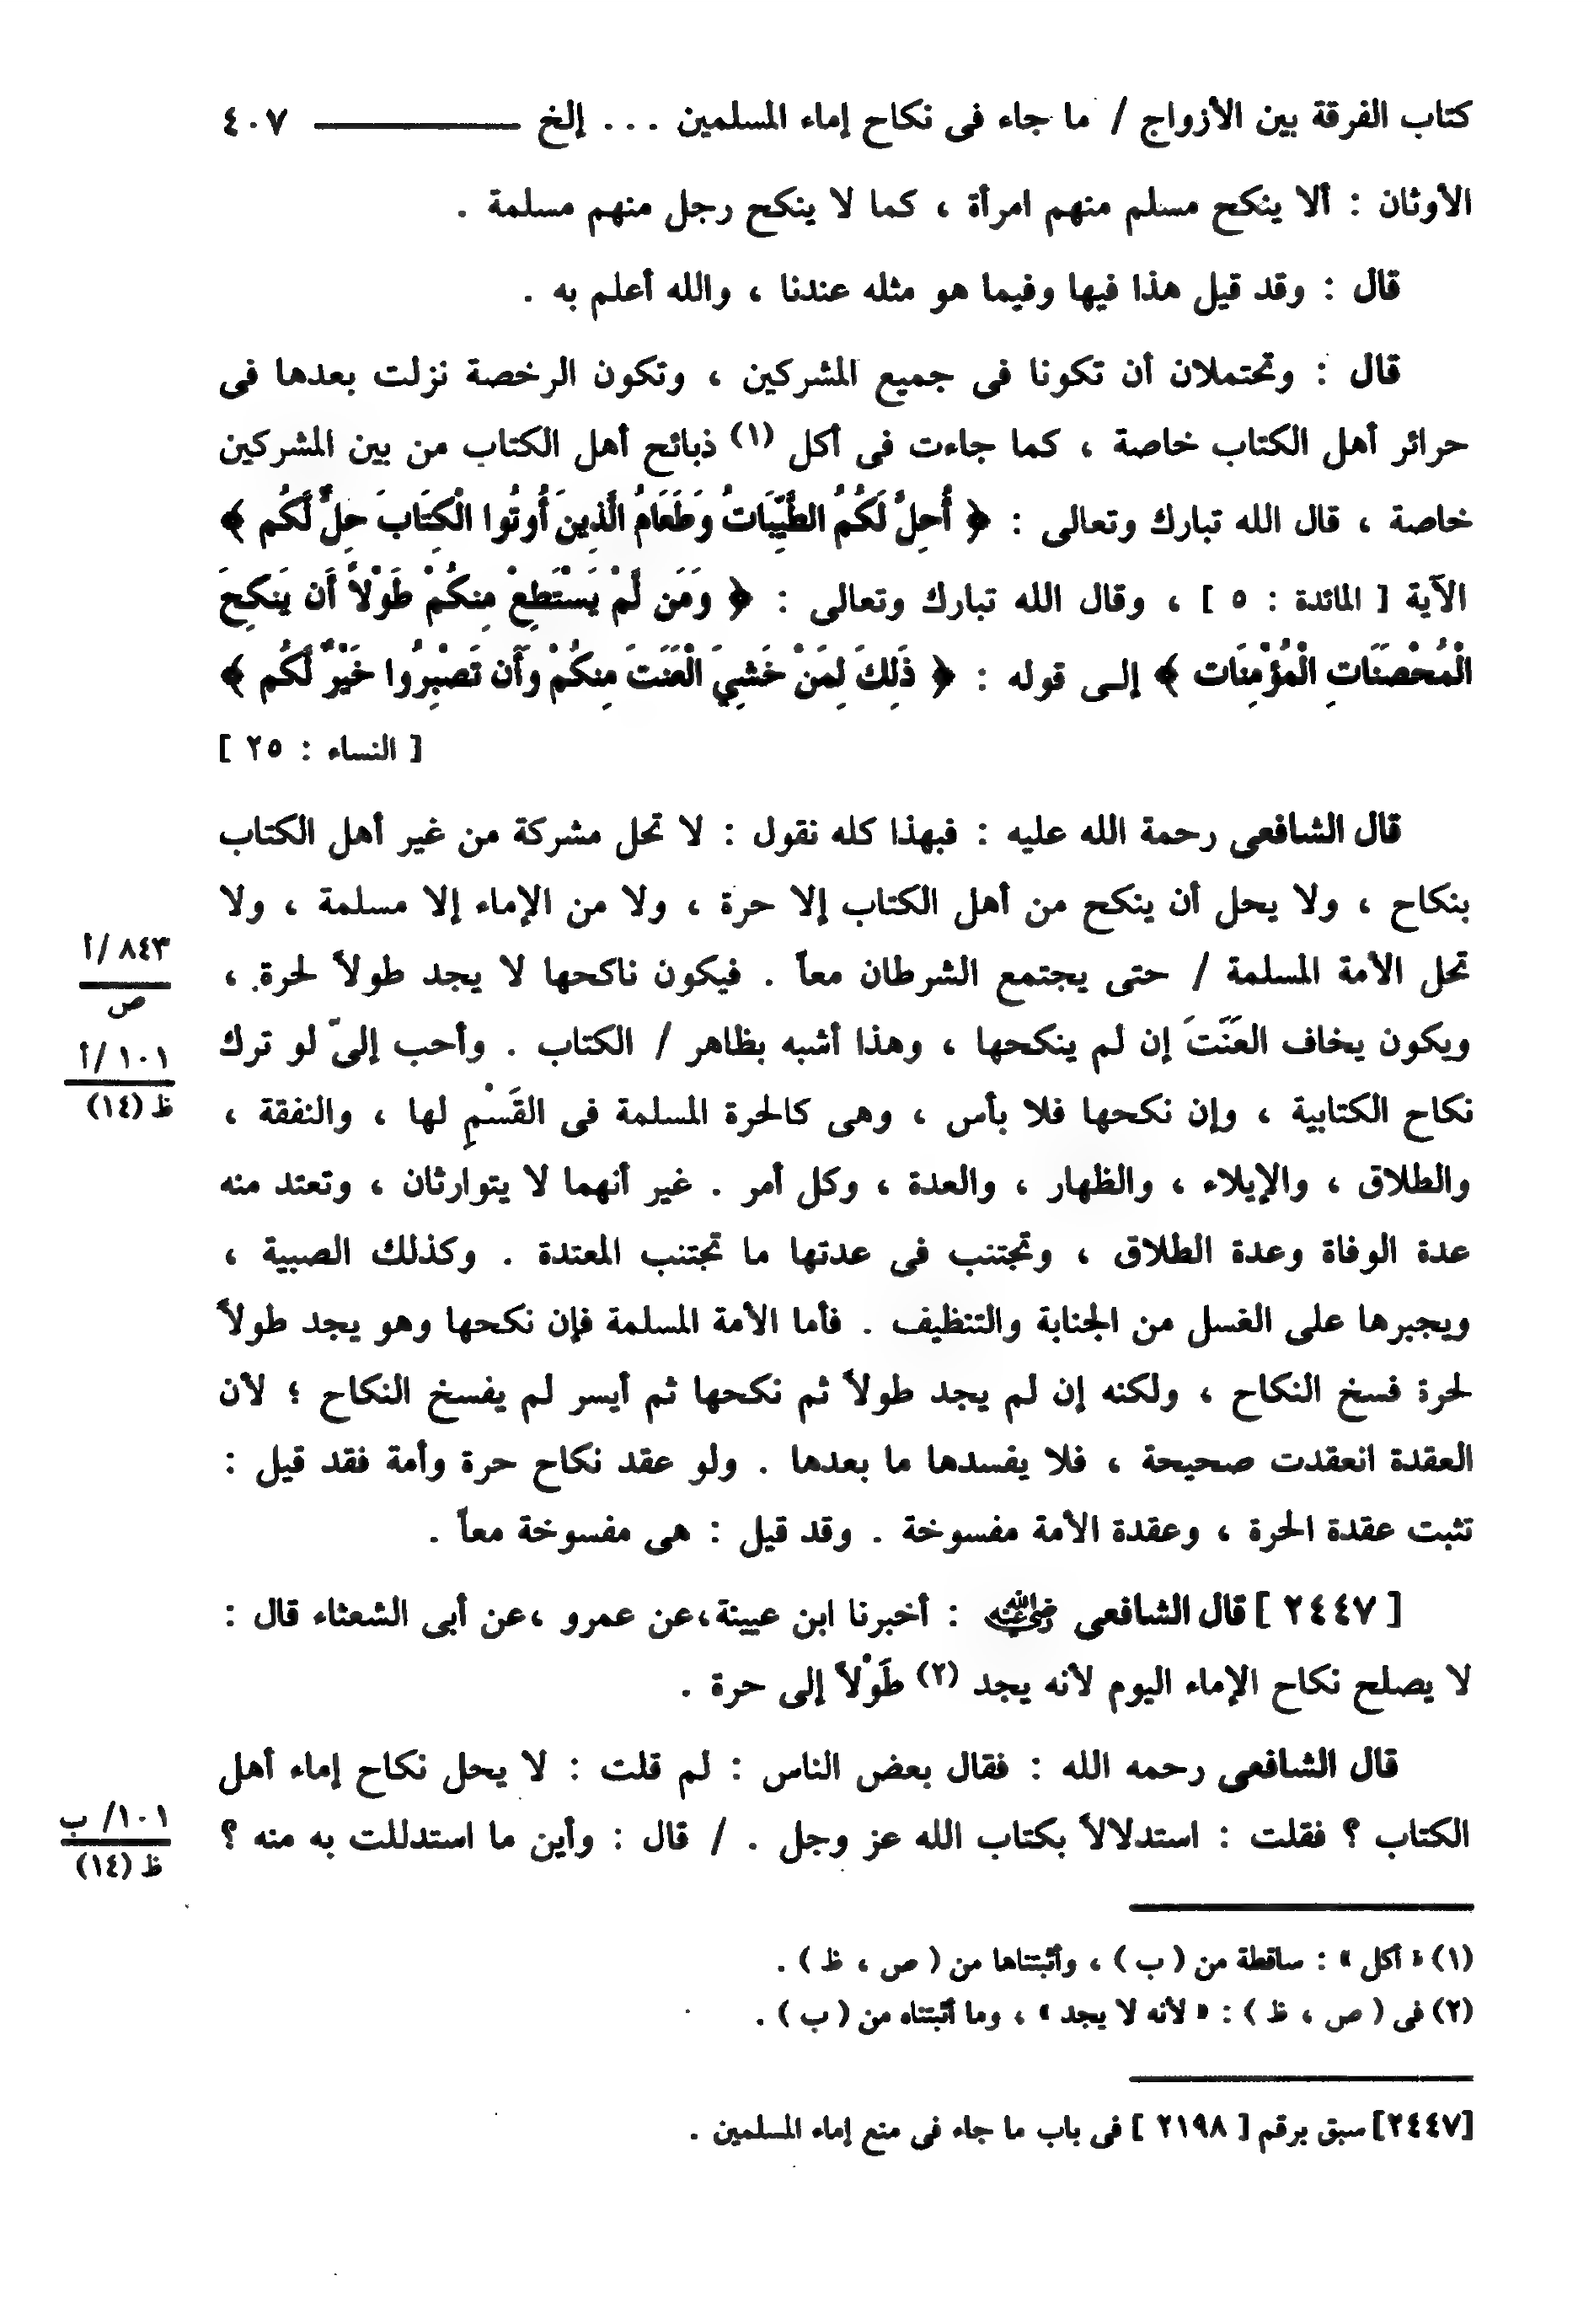 كتاب الفرقة بين الأزواج / ما جاء فى نكاح إماء المسلمين ... إلخ ــــــــــ ٤٠٧
الأوثان : ألا ينكح مسلم منهم امرأة ، كما لا ينكح رجل منهم مسلمة .
قال : وقد قيل هذا فيها وفيما هو مثله عندنا ، والله أعلم به .
قال : وتحتملان أن تكونا فى جميع المشركين ، وتكون الرخصة نزلت بعدها فى
حرائر أهل الكتاب خاصة ، كما جاءت فى أكل (١) ذبائح أهل الكتاب من بين المشركين
خاصة ، قال الله تبارك وتعالى : ﴿ أُحِلَّ لَكُمُ الطَّيِّبَاتُ وَطَعَامُ الَّذِينَ أُوتُوا الْكِتَابَ حِلٌّ لَّكُم ﴾
الآية [ المائدة : ٥ ] ، وقال الله تبارك وتعالى : ﴿ وَمَن لَّمْ يَسْتَطِعْ مِنكُمْ طَوْلاً أَن يَنكِحَ
الْمُحْصَنَاتِ الْمُؤْمِنَات ﴾ إلى قوله : ﴿ ذَلِكَ لِمَنْ خَشِيَ الْعَنَتَ مِنكُمْ وَأَن تَصْبِرُوا خَيْرٌ لَّكُم ﴾
[ النساء : ٢٥ ]
قال الشافعى رحمة الله عليه : فبهذا كله نقول : لا تحل مشركة من غير أهل الكتاب
بنكاح ، ولا يحل أن ينكح من أهل الكتاب إلا حرة ، ولا من الإماء إلا مسلمة ، ولا
تحل الأمة المسلمة / حتى يجتمع الشرطان معاً . فيكون ناكحها لا يجد طولاً لحرة ،
٨٤٣ /أ
ص
ويكون يخاف العَنَتَ إن لم ينكحها ، وهذا أشبه بظاهر / الكتاب . وأحب إلىّ لو ترك
١٠١ /أ
ظ (١٤)
نكاح الكتابية ، وإن نكحها فلا بأس ، وهى كالحرة المسلمة فى القَسْمِ لها ، والنفقة ،
والطلاق ، والإيلاء ، والظهار ، والعدة ، وكل أمر . غير أنهما لا يتوارثان ، وتعتد منه
عدة الوفاة وعدة الطلاق ، وتجتنب فى عدتها ما تجتنب المعتدة . وكذلك الصبية ،
ويجبرها على الغسل من الجنابة والتنظيف . فأما الأمة المسلمة فإن نكحها وهو يجد طولاً
لحرة فسخ النكاح ، ولكنه إن لم يجد طولاً ثم نكحها ثم أيسر لم يفسخ النكاح ؛ لأن
العقدة انعقدت صحيحة ، فلا يفسدها ما بعدها . ولو عقد نكاح حرة وأمة فقد قيل :
تثبت عقدة الحرة ، وعقدة الأمة مفسوخة . وقد قيل : هى مفسوخة معاً .
[ ٢٤٤٧ ] قال الشافعى رضي الله عنه : أخبرنا ابن عيينة،عن عمرو ،عن أبى الشعثاء قال :
لا يصلح نكاح الإماء اليوم لأنه يجد (٢) طَوْلاً إلى حرة .
قال الشافعى رحمه الله : فقال بعض الناس : لم قلت : لا يحل نكاح إماء أهل
الكتاب ؟ فقلت : استدلالاً بكتاب الله عز وجل . / قال : وأين ما استدللت به منه ؟
١٠١/ ب
ظ (١٤)
(١) « أكل » : ساقطة من ( ب ) ، وأثبتناها من ( ص ، ظ ) .
(٢) فى ( ص ، ظ ) : « لأنه لا يجد » ، وما أثبتناه من ( ب ) .
[٢٤٤٧] سبق برقم [ ٢١٩٨ ] فى باب ما جاء فى منع إماء المسلمين .